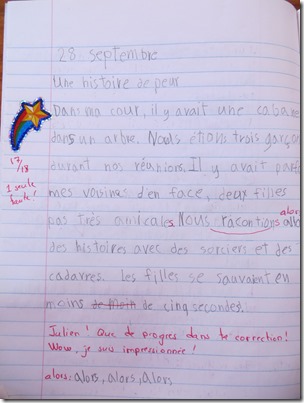 28 septembre
Une histoire de peur
Dans ma cour, il y avait une cabane
dans un arbre. Nous étions trois garçons
durant nos réunions. Il y avait
mes voisines d'en face, deux filles
pas très amicales. Nous racontions alors
des histoires avec des sorciers et des
cadavres. Les filles se sauvaient en
moins de cinq secondes.
17/18
1 seule faute!
Julien! Que de progrès dans ta correction!
Wow, je suis impressionnée!
alors: alors, alors, alors